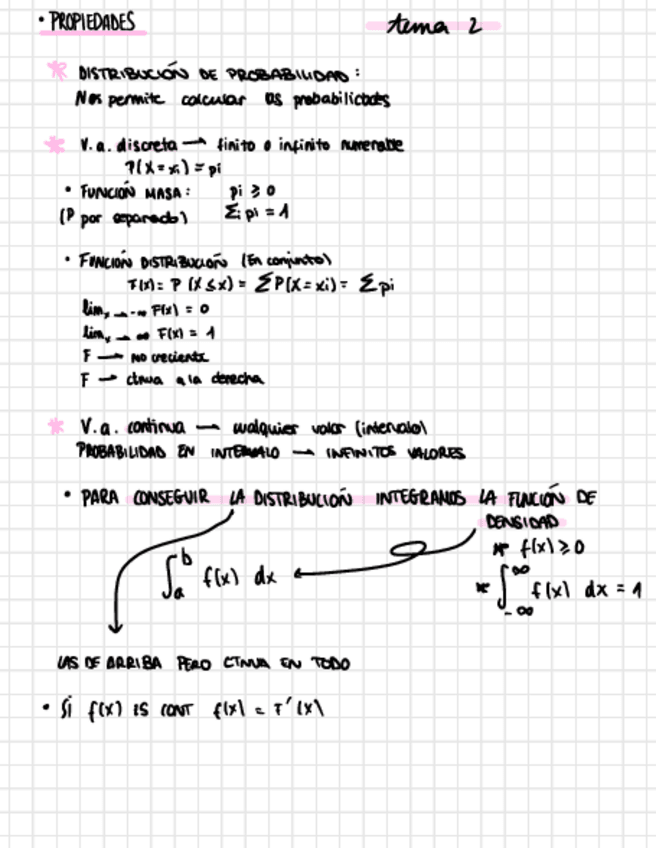 • PROPIEDADES
tema 2
* DISTRIBUCIÓN DE PROBABILIDAD :
Nos permite calcular as probabilidades
* V.a. discreta → finito o infinito numerable
P(X = xi) = pi
• FUNCIÓN MASA : pi ≥ 0
(P por separado) Σi pi = 1
• FUNCIÓN DISTRIBUCIÓN (En conjunto)
F(x) = P (X ≤ x) = ΣP(X = xi) = Σpi
limx → -∞ F(x) = 0
limx → ∞ F(x) = 1
F → no creciente
F → ctnua a la derecha
* V.a. continua → cualquier valor (intervalo)
PROBABILIDAD EN INTERVALO → INFINITOS VALORES
• PARA CONSEGUIR LA DISTRIBUCIÓN INTEGRAMOS LA FUNCIÓN DE
DENSIDAD
* f(x) ≥ 0
∫_a^b f(x) dx
* ∫_-∞^∞ f(x) dx = 1
LAS DE ARRIBA PERO CTNUA EN TODO
• Si f(x) ES CONT f(x) = F'(x)